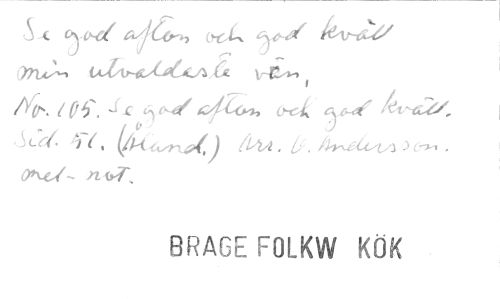 Se god afton och god kväll
min utvaldaste vän,
No. 105. Se god afton och god kväll.
Sid. 51. (Åland.) Arr. O. Andersson.
mel-not.
BRAGE FOLKW KÖK